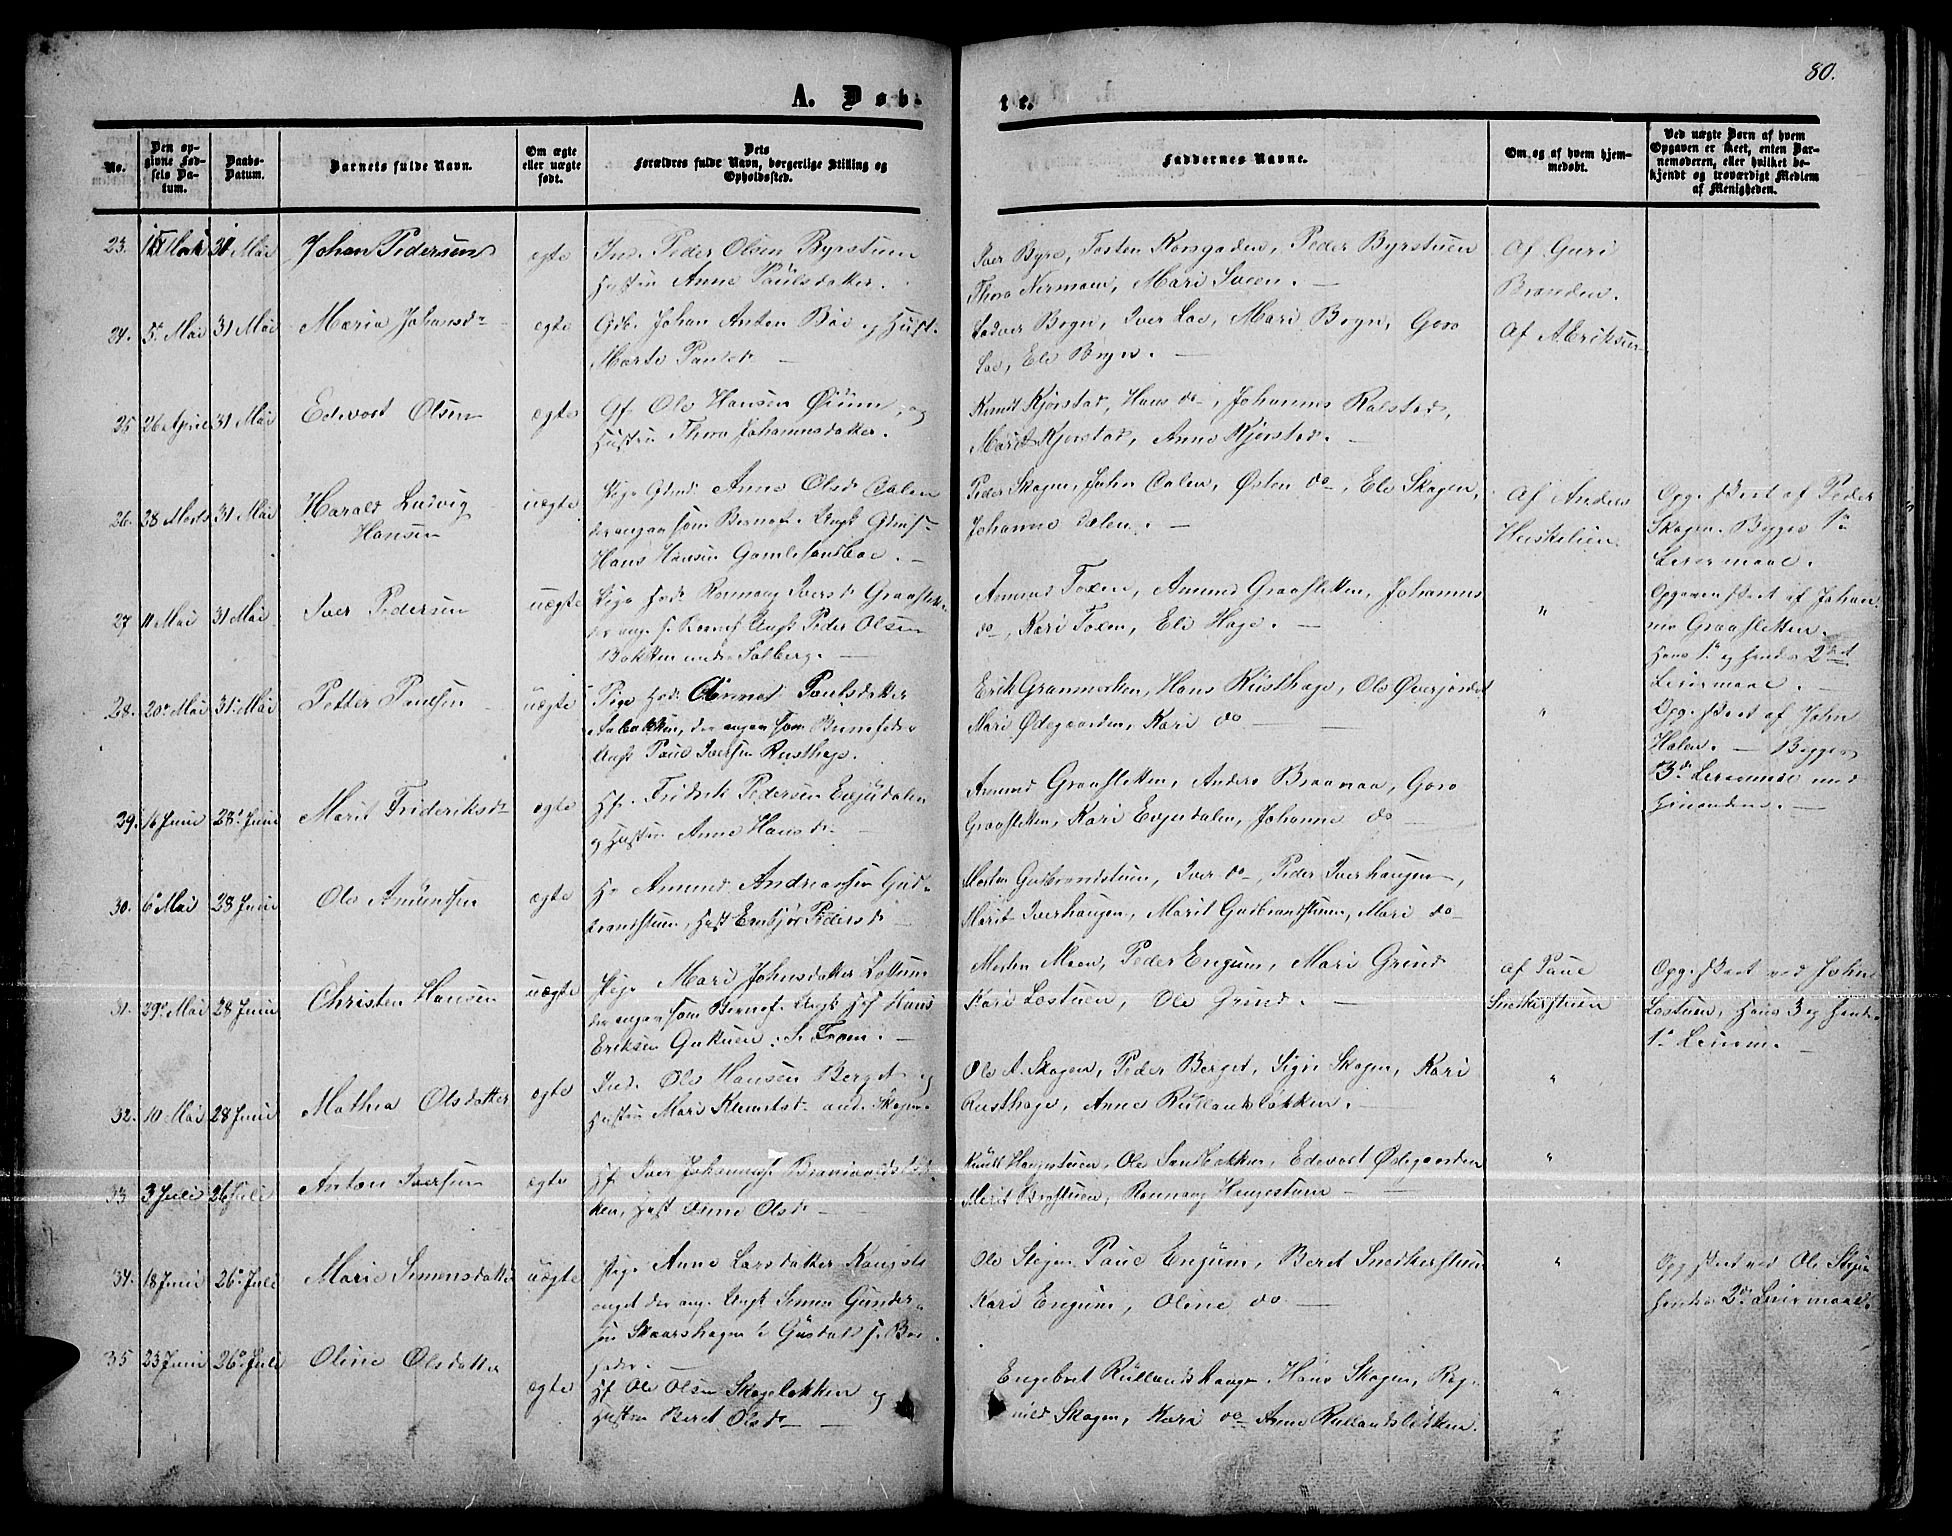 80.
A. Døb-
te.
No.
Den op-
givne Fød-
sels Da-
tum.
Daabs-
Datum.
Barnets fulde Navn.
Om ægte
eller uægte
født.
Dets
Forældres fulde Navn, borgerlige Stilling og
Opholdssted.
Faddernes Navne.
Om og af hvem hjem-
medøbt.
Ved uægte Børn af hvem
Opgaven er skeet, enten Bar-
nemoderen, eller hvilket be-
kjendt og troværdigt Medlem
af Menigheden.
23. Mai 31 Mai Johan Pedersen ægte
Ind. Peder Olsen Byrstuen
Hustru Anne Paulsdatter.
Iver Byre, Torsten Korsgaden, Peder Byrstuen
Thora Nermoen, Mari Sveen. —
Af Guri
Branden.
24. 5 Mai 31 Mai Maria Johansdr ægte
Gdb. Johan Anton Bøe og Hust.
Marte Paulsdr —
Bøgn, Iver Loe, Mari Bøgn, Goro
Loe, Eli Bøgn. —
Af A. Eriksen
25 26 April 31 Mai Edevart Olsen ægte
Gf. Ole Hansen Øium, og
Hustru Thora Johannesdatter.
Knud Kjørstad, Hans do, Johannes Kolstad,
Marit Kjørstad, Anne Kjørstad. —
26. 28 Marts 31 Mai Harald Ludvig
Hansen
uægte
Pige Anne Olsdr Dalen
der angav som Barnef. Ungk.
Hans Hansen Gamlesandboe. —
Peder Skogen, John Dalen, Østen do, Eli Skogen,
Johanne Dalen. —
Af Anders
Huskelien
Opg. skeet af Peder
Skogen. Begges 1ste
Leiermaal.
27 11 Mai 31 Mai Iver Pedersen uægte
Pige Ronnaug Iversdr Graasletten
der ang. s. Barnef. Ungk. Peder Olsen
Bakken under Solberg. —
Amund Toxen, Amund Graasletten, Johannes
do, Kari Toxen, Eli Hage. —
"
Opgaven skeet af Johan-
nes Graasletten.
Hans 1ste og hendes 2det
Leiermaal. —
28. 20 Mai 31 Mai Petter Paulsen uægte
Pige Paulsdatter
Aabakken, der angav som Barnefader
Ungk. Paul Iversen Rusthage.
Erik Granmorken, Hans Rusthage, Ole Øverjordet
Mari Ødegaarden, Kari do —
"
Opg. skeet af John
Holen. — Begges
3de Leiermaal med
hinanden. —
29. 16 Juni 28 Juni Marit Frideriksdr ægte
Hf. Fridrik Pedersen Evjudalen
og Hustru Anne Hansdr —
Amund Graasletten, Anders Braanaa, Goro
Graasletten, Kari Evjudalen, Johanne do —
30. 6 Mai 28 Juni Ole Amundsen ægte
Amund Andreassen Gud-
brandstuen, Hust Embjør Pedersdr —
Morten Gudbrandstuen, Iver do, Peder Iverhaugen,
Marit Iverhaugen, Marit Gudbrandstuen, Mari do
31. 29 Mai 28 Juni Christen Hansen uægte
Pige Mari Johnsdatter
der angav som Barnef. Ungk. Hans
Eriksen S. Fron. —
Morten Moen, Peder Engum, Mari Grind
Kari Lostuen, Ole Grind. —
af Paul
Snekkerstuen
Opg. skeet ved John
Lostuen, Hans 3 og hendes
1ste Leierm. —
32. 10 Mai 28 Juni Mathea Olsdatter ægte
Ind. Ole Hansen Berget og
Hustru Mari Knudsdr und. Skogen.
Ole A. Skogen, Peder Berget, Sigri Skogen, Kari
Rusthage, Anne Rullandsløkken. —
"
33 3 Juli 26 Juli Anton Iversen ægte
Hf. Iver Johannes.
ken, Hust Anne Olsdr —
Knud Haugestuen, Ole Sandbakken, Edevart Ødegaarden
Marit Brustuen, Ronnaug Haugestuen —
"
34. 18 Juni 26 Juli Marie Simensdatter uægte
Pige Anne Larsdatter
der ang. Ungk. Simen Gunder-
sen Skaarshagen s. Bar-
fader. —
Ole Stigen, Paul Engum, Beret Snedkerstuen
Kari Engum, Oline do —
"
Opg. skeet ved Ole Stigen
hendes 2de Leiermaal.
35 23 Juni 26 Juli Oline Olsdatter ægte
Hf. Ole Olsen Skogeløkken og
Hustru Beret Olsdr —
Engebret Rullandshaugen, Hans Skogen, Rag-
nild Skogen, Kari do Anne Rullandsløkken.
"